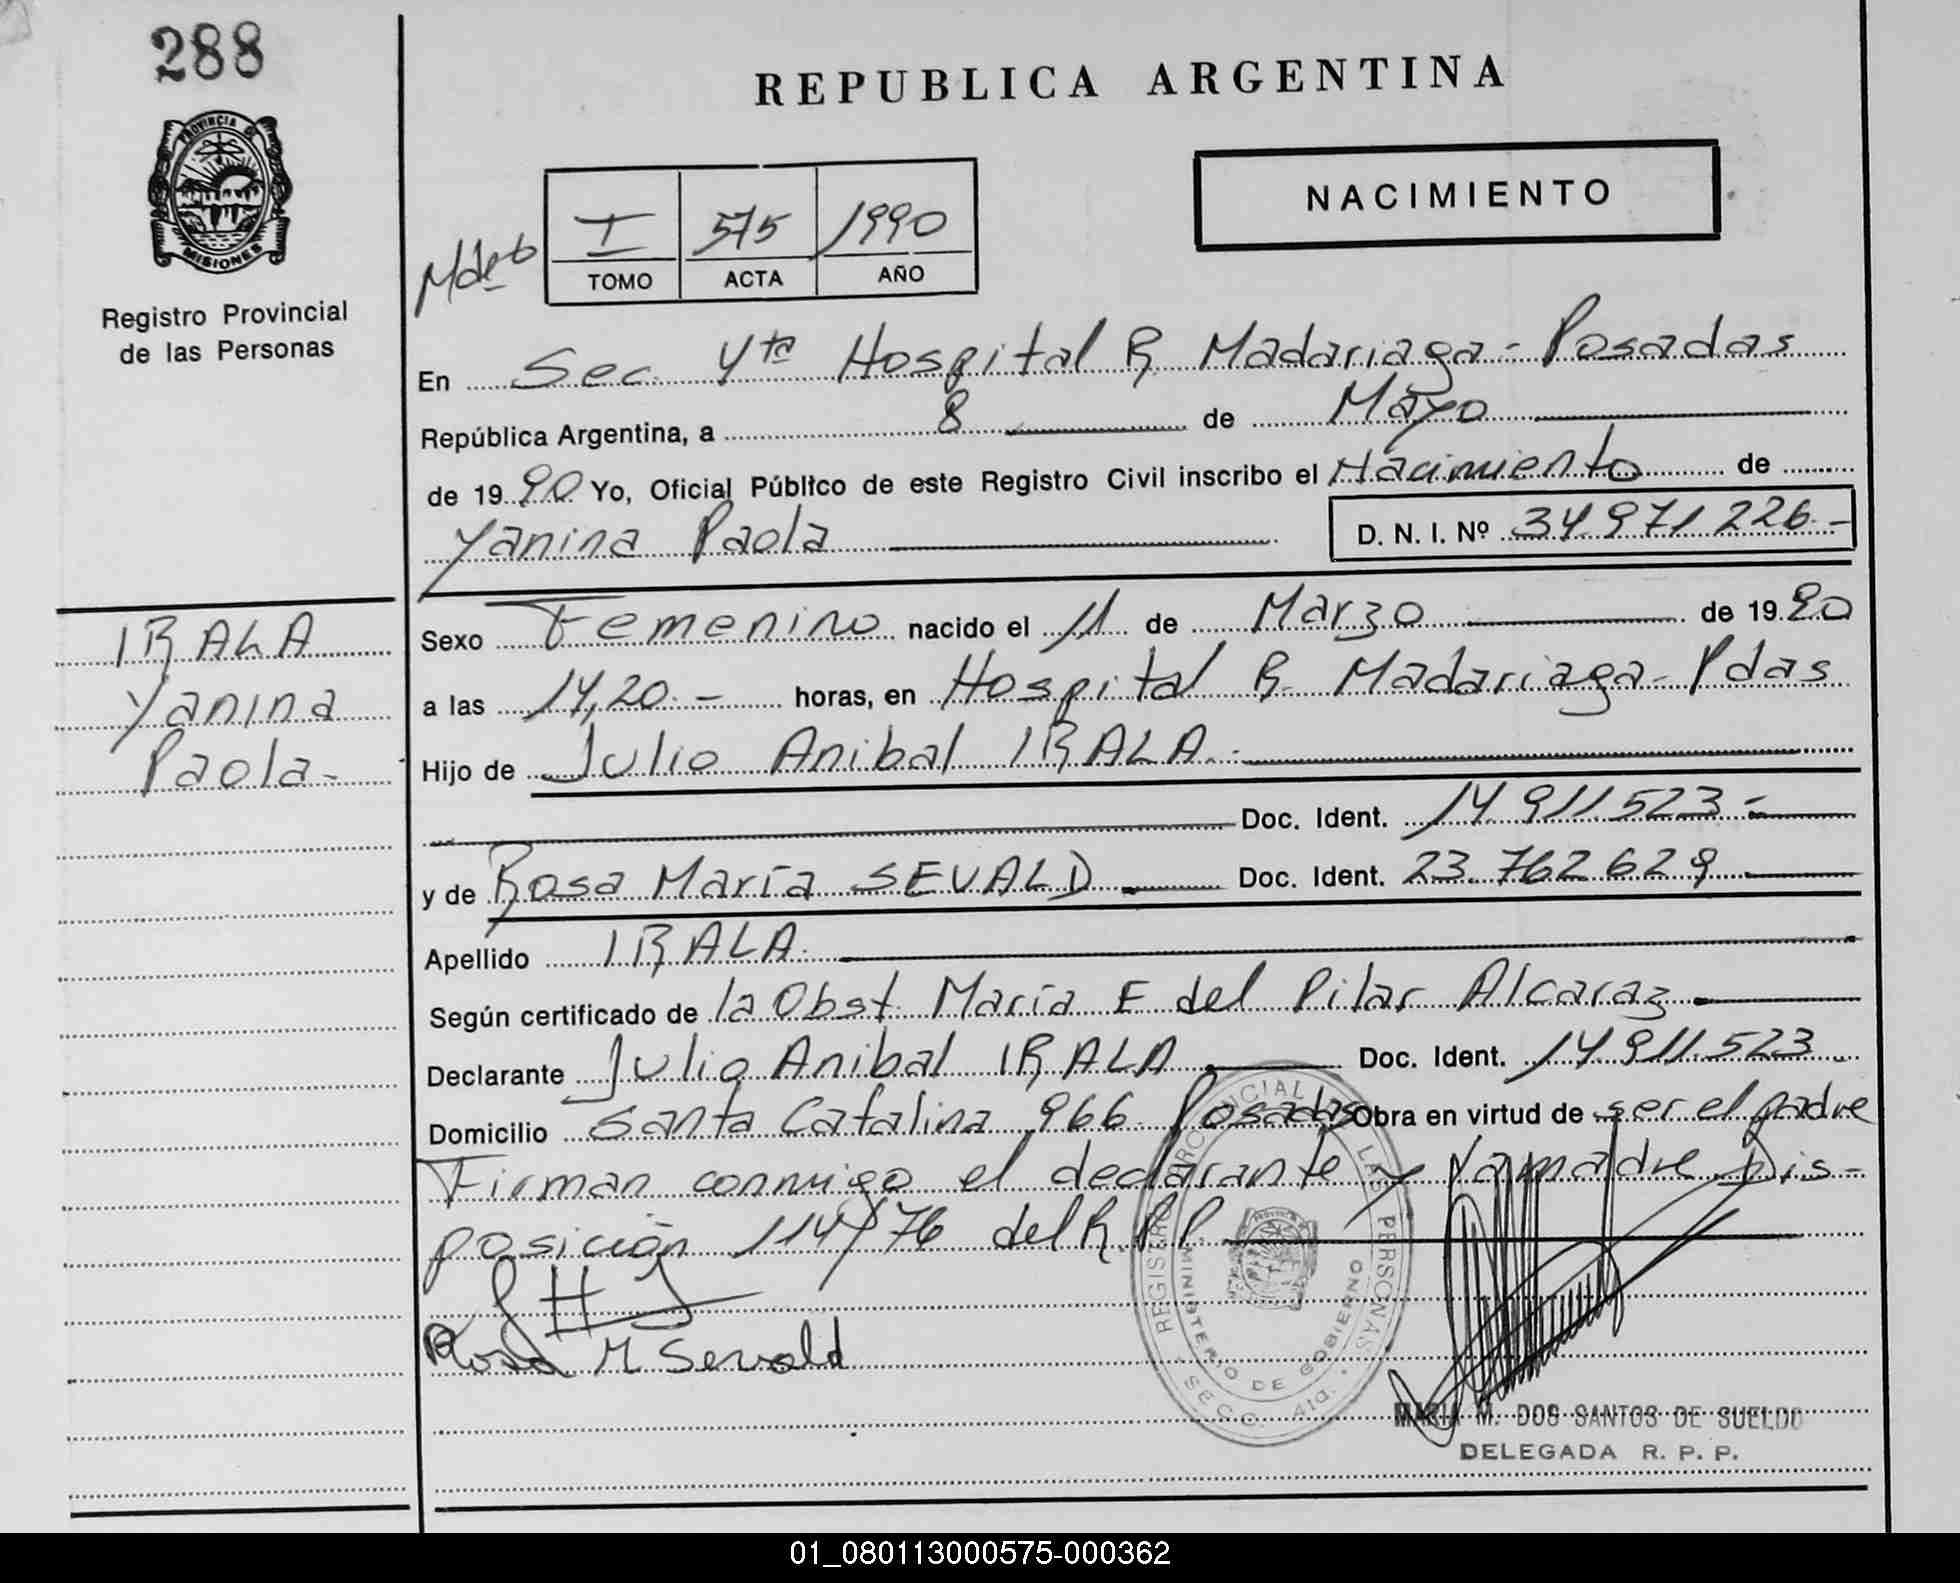 288
REPUBLICA ARGENTINA
PROVINCIA DE
MISIONES
Registro Provincial
de las Personas
NACIMIENTO
I 575 1990
TOMO ACTA AÑO
En Sec. 4ta Hospital R. Madariaga - Posadas
República Argentina, a 8 de Mayo
de 1990 Yo, Oficial Público de este Registro Civil inscribo el Nacimiento de
Yanina Paola D. N. I. Nº 34.971.226.-
IRALA
Yanina
Paola-
Sexo Femenino nacido el 11 de Marzo de 1990
a las 14,20.- horas, en Hospital R. Madariaga - Pdas
Hijo de Julio Anibal IRALA.-
Doc. Ident. 14.911.523.-
y de Rosa María SEVALD Doc. Ident. 23.762.629
Apellido IRALA.
Según certificado de la Obst. María E del Pilar Alcaraz
Declarante Julio Anibal IRALA Doc. Ident. 14.911.523
Domicilio Santa Catalina 966. Posadas Obra en virtud de ser el padre
Firman conmigo el declarante y la madre Dis-
posición 114/76 del R.P.P.
Rosa M Sevald
REGISTRO PROVINCIAL DE LAS PERSONAS
MINISTERIO DE GOBIERNO
SECC. 4ta.
MARIA M. DOS SANTOS DE SUELDO
DELEGADA R. P. P.
01_080113000575-000362